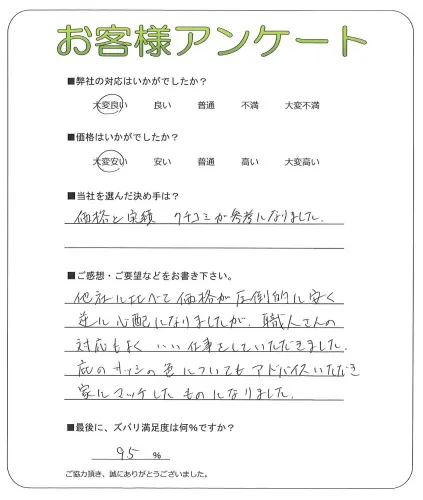 お客様アンケート
■弊社の対応はいかがでしたか？
大変良い 良い 普通 不満 大変不満
■価格はいかがでしたか？
大変安い 安い 普通 高い 大変高い
■当社を選んだ決め手は？
価格と実績 クチコミが参考になりました.
■ご感想・ご要望などをお書き下さい。
他社に比べて価格が圧倒的に安く
逆に心配になりましたが、職人さんの
対応もよく いい仕事をしていただきました.
庇のサッシの色についてもアドバイスいただき
家にマッチしたものになりました.
■最後に、ズバリ満足度は何%ですか？
95 %
ご協力頂き、誠にありがとうございました。